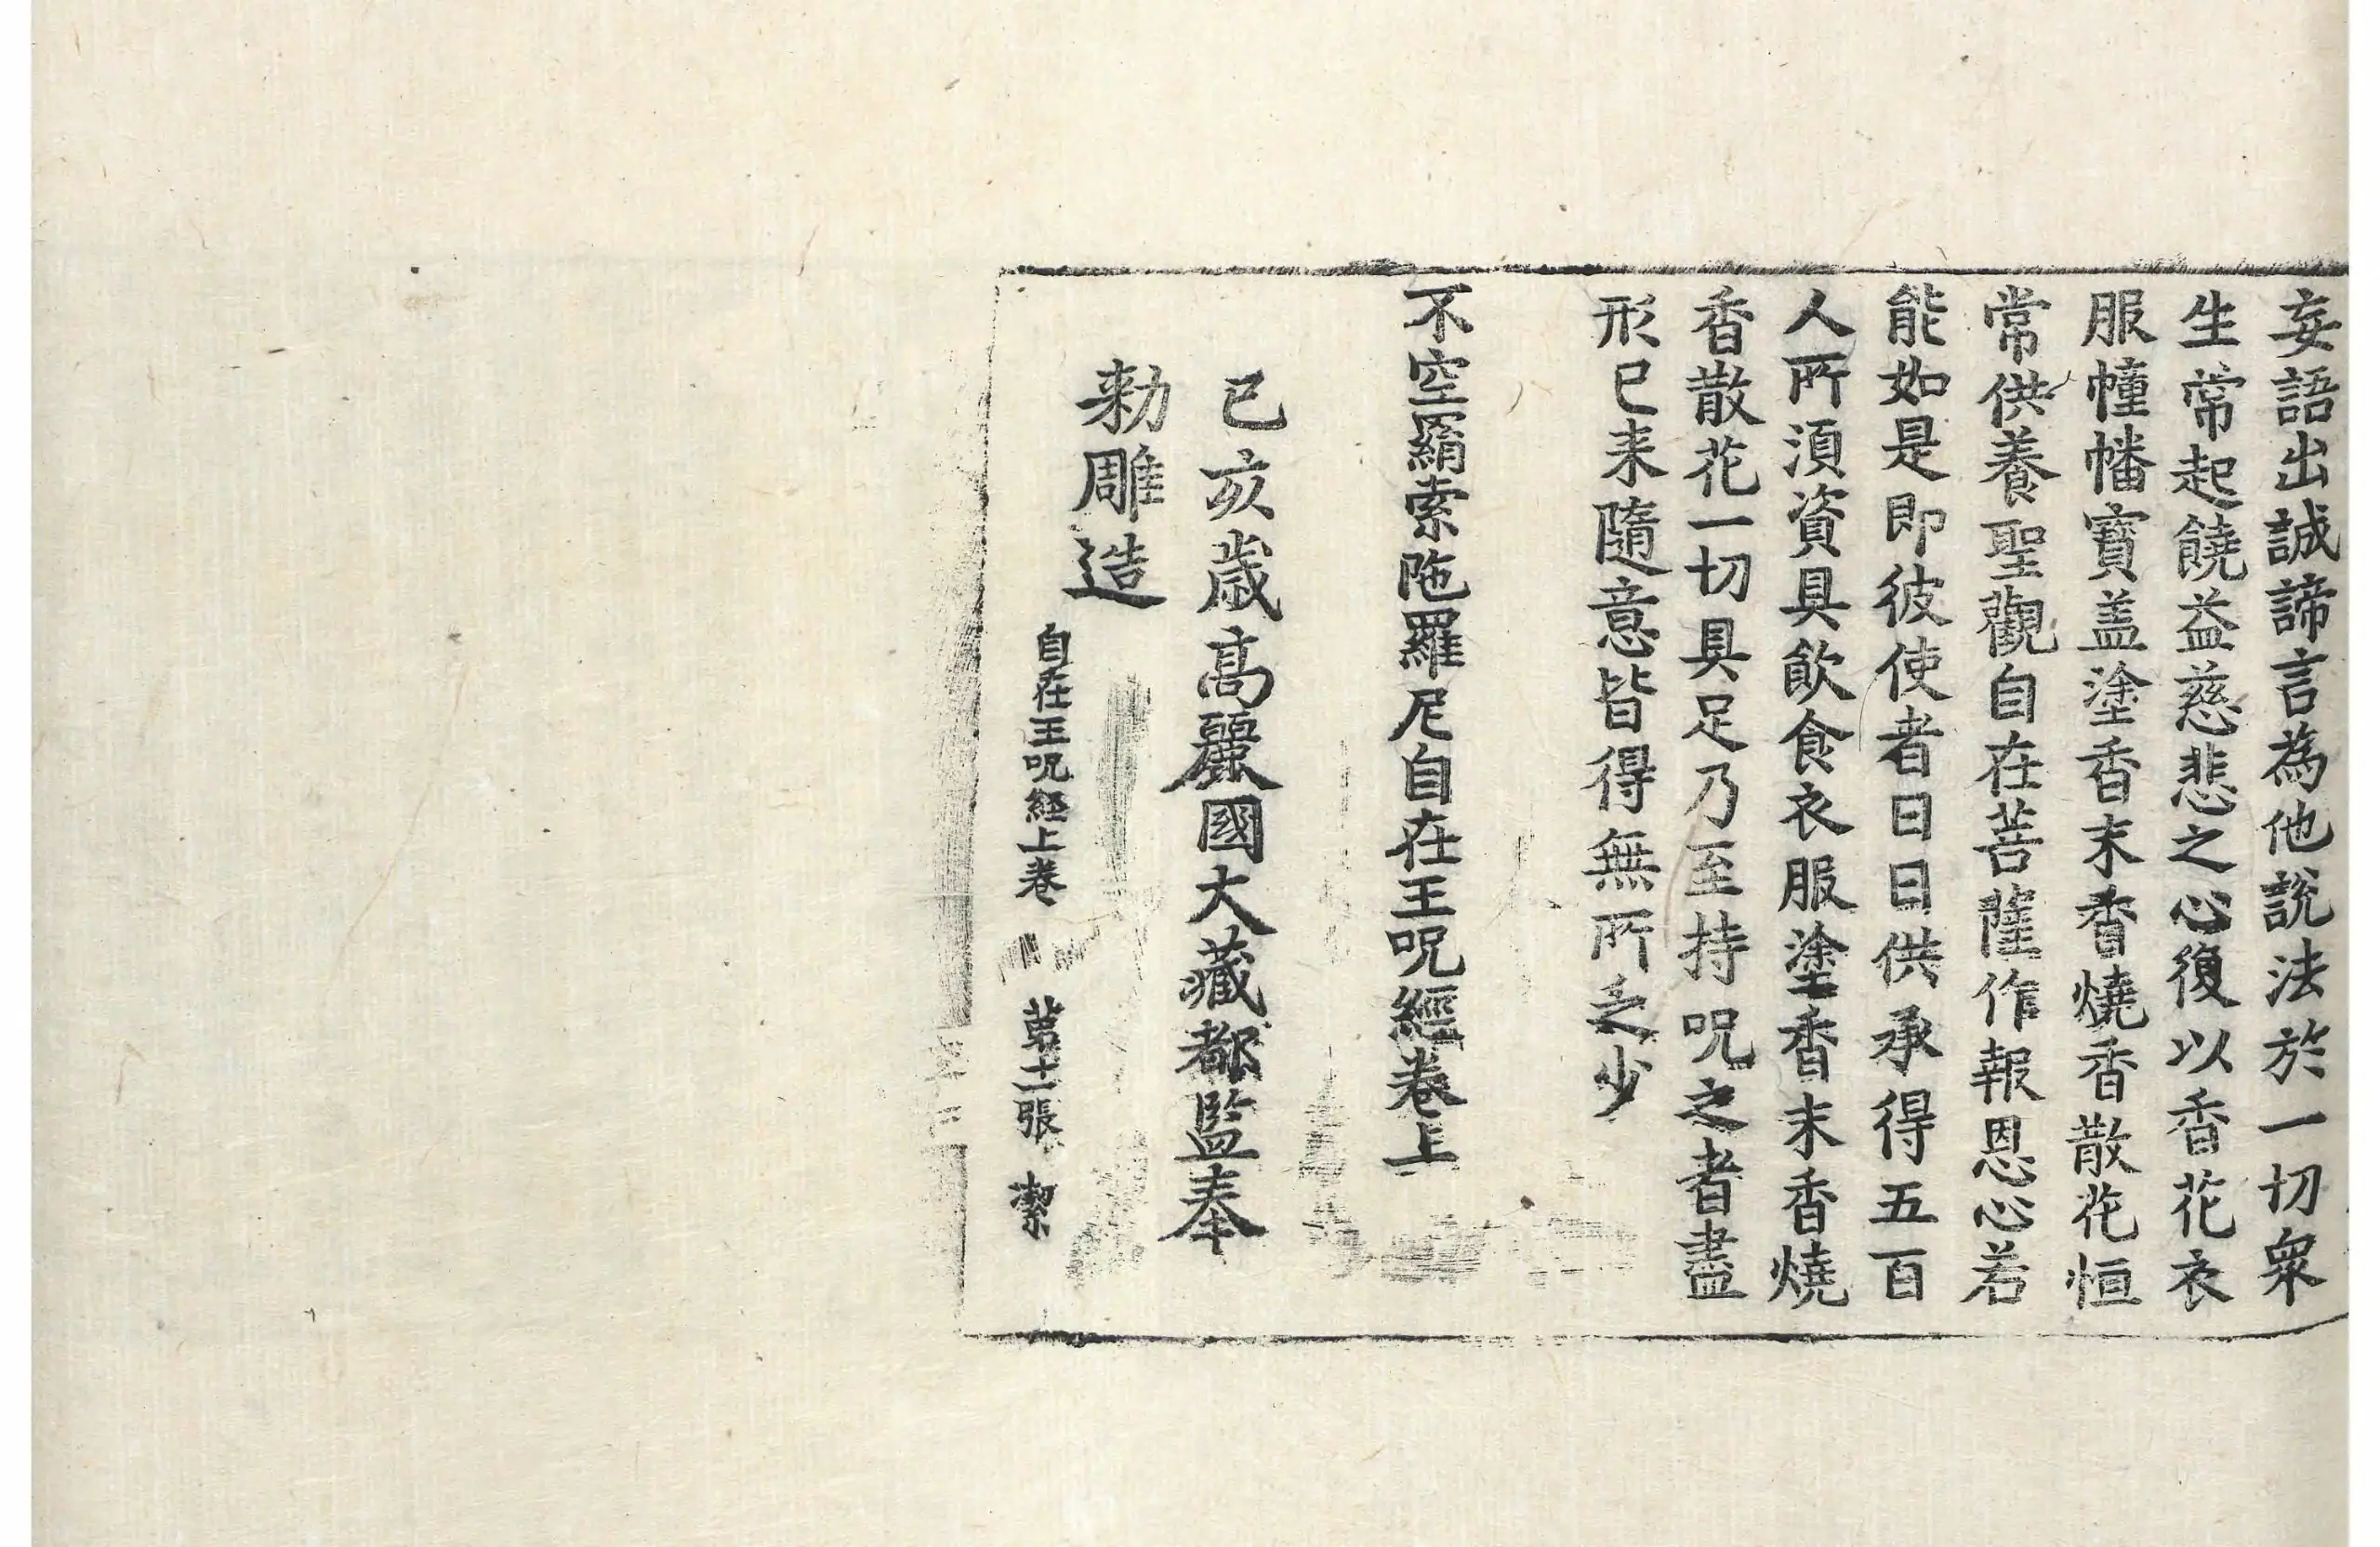 妄語出誠諦言為他說法於一切衆
生常起饒益慈悲之心復以香花衣
服幢幡寶盖塗香末香燒香散花恒
常供養聖觀自在菩薩作報恩心若
能如是即彼使者日日供承得五百
人所湏資具飲食衣服塗香末香燒
香散花一切具足乃至持呪之者盡
形已来隨意皆得無所乏少
不空羂索陁羅尼自在王呪經卷上
己亥歲髙麗國大藏都監奉
勑雕造
自在王呪経上卷 苐十二張 潔